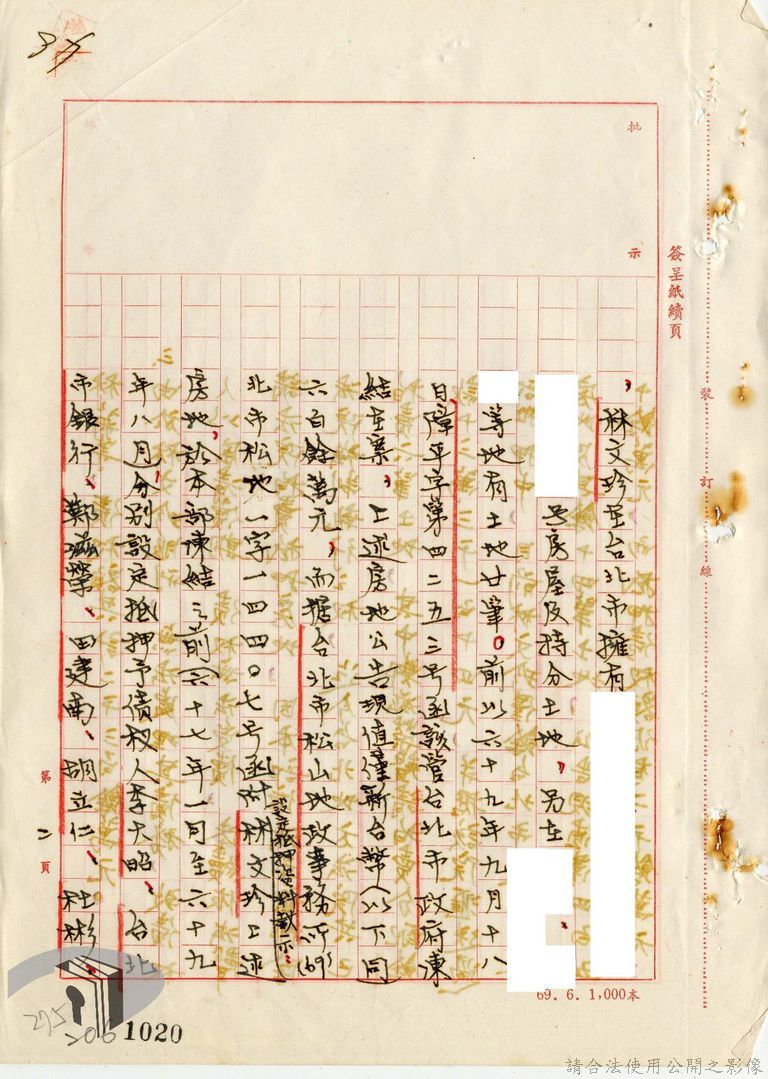 批示
簽呈紙續頁
裝訂線
、林文珍在台北市擁有
号房屋及持分土地，另在
等地有土地廿筆。前以六十九年九月十八
日障平字第四二五三号函該管台北市政府凍
結在案，上述房地公告現值僅新台幣（以下同
六百餘萬元，而据台北市松山地政事務所(69)
北市松地一字一四四〇七号函附林文珍上述
設定抵押資料載示：
房地，於本部凍結之前（六十七年一月至六十九
年八月）分別設定抵押予債权人李大昭、台北
市銀行、鄭滋榮、田建南、胡立仁、杜彬、
第二頁
69. 6. 1,000本
275
206
1020
請合法使用公開之影像